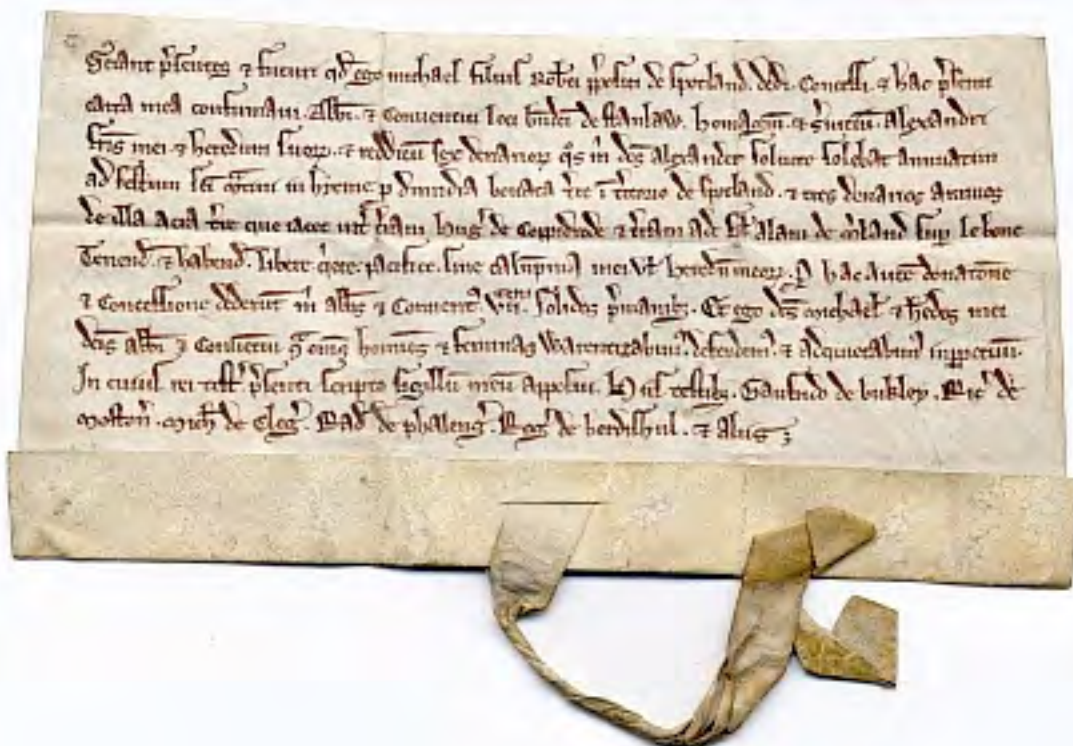 Sciant p'sentes & futuri qd' ego michael filius Rob'ti p'positi de spotland. dedi. Concessi. & hac p'senti
carta mea confirmavi. Abb'i. & Conventui loci b'n'dci de stanlaw. homagiu'. & s'viciu'. Alexandri
fr'is mei & heredum suor'. & redditu' sex denarior' q's m' d'c's alexander solvere solebat annuatim
ad festum s'ci m'tini in hyeme p' dimidia bovata t're i' t'ritorio de spotland. & tres denarios annuos
de illa acra t're que iacet int' t'ram hug' de & t'ram ad. Alani de m'land sup'
Tenend'. & habend'. libere. q'ete. pacifice. sine calu'pnia mei v'l heredu' meor'. P' hac aute' donat'one
& Concessione dederunt m' abb's & Convent'. solidos p' manib'. Et ego d'c's michael & h'edes mei
d'c'is abb'i & Conve'tui 9't' om'es homines & feminas Warentizabim'. defendem'. & adquietabim' inp'petuu'.
In cuius rei test' p'senti scripto sigillu' meu' apposui. H'iis testib'. Gaufrido de bukley. Ric' de
moston'. mich' de Cleg'. Rad' de phaleng'. Rog' de & aliis